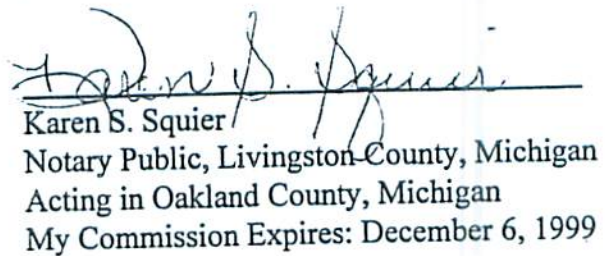 Karen S. Squier
Karen S. Squier
Notary Public, Livingston County, Michigan
Acting in Oakland County, Michigan
My Commission Expires: December 6, 1999